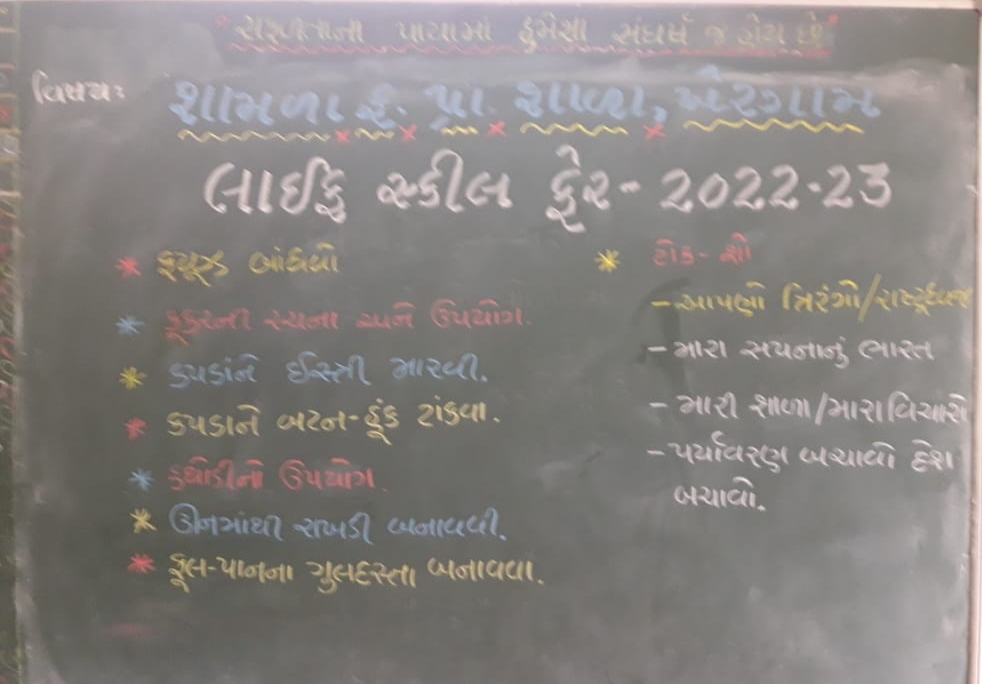 સફળતાના પાયામાં હંમેશા સંઘર્ષ જ હોય છે
વિષય:
શામળા ફ. પ્રા. શાળા, ખેરગામ
લાઈફ સ્કીલ ફેર - 2022-23
* ફ્યૂઝ બાંધવો
* કૂકરની રચના અને ઉપયોગ.
* કપડાંને ઈસ્ત્રી મારવી.
* કપડાને બટન-હૂંક ટાંકવા.
* હથોડીનો ઉપયોગ.
* ઊનમાંથી રાખડી બનાવવી.
* ફૂલ-પાનના ગુલદસ્તા બનાવવા.
* ટોક- શો
- આપણો ત્રિરંગો/રાષ્ટ્રધ્વજ
- મારા સપનાનું ભારત
- મારી શાળા/મારા વિચારો
- પર્યાવરણ બચાવો દેશ
બચાવો.